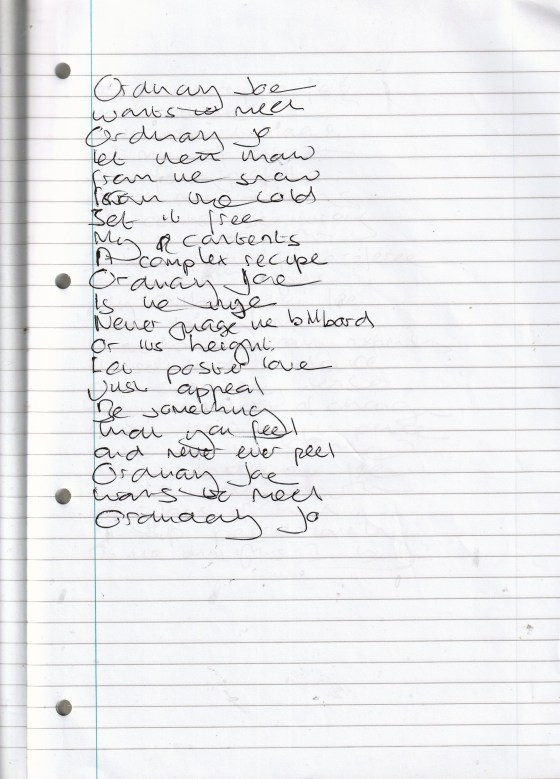 Ordinary Joe
wants to meet
Ordinary Jo
let them thaw
from the snow
From the cold
Set it free
My contents
A complex recipe
Ordinary Joe
Is the urge
Never the billboard
Or its height
Let poster love
Just appeal
Be something
that you feel
and never ever peel
Ordinary Joe
wants to meet
Ordinary Jo